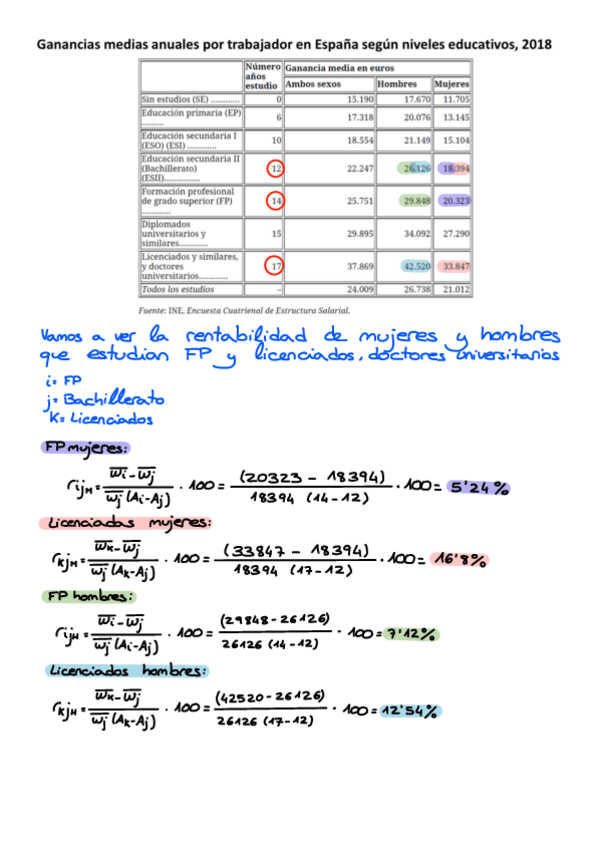 Ganancias medias anuales por trabajador en España según niveles educativos, 2018
Número años estudio Ganancia media en euros
Ambos sexos Hombres Mujeres
Sin estudios (SE) ............ 0 15.190 17.670 11.705
Educación primaria (EP) ......... 6 17.318 20.076 13.145
Educación secundaria I (ESO) (ESI) ............ 10 18.554 21.149 15.104
Educación secundaria II (Bachillerato) (ESII)............... 12 22.247 26.126 18.394
Formación profesional de grado superior (FP) ............ 14 25.751 29.848 20.323
Diplomados universitarios y similares............ 15 29.895 34.092 27.290
Licenciados y similares, y doctores universitarios............ 17 37.869 42.520 33.847
Todos los estudios – 24.009 26.738 21.012
Fuente: INE, Encuesta Cuatrienal de Estructura Salarial.
Vamos a ver la rentabilidad de mujeres y hombres
que estudian FP y licenciados, doctores universitarios
i= FP
j= Bachillerato
K= Licenciados
FP mujeres:
rijM = (w̅i - w̅j) / (w̅j (Ai-Aj)) · 100 = (20323 - 18394) / (18394 (14-12)) · 100 = 5'24%
Licenciadas mujeres:
rkjM = (w̅k - w̅j) / (w̅j (Ak-Aj)) · 100 = (33847 - 18394) / (18394 (17-12)) · 100 = 16'8%
FP hombres:
rijH = (w̅i - w̅j) / (w̅j (Ai-Aj)) · 100 = (29848-26126) / (26126 (14-12)) · 100 = 7'12%
Licenciados hombres:
rkjH = (w̅k - w̅j) / (w̅j (Ak-Aj)) · 100 = (42520-26126) / (26126 (17-12)) · 100 = 12'54%